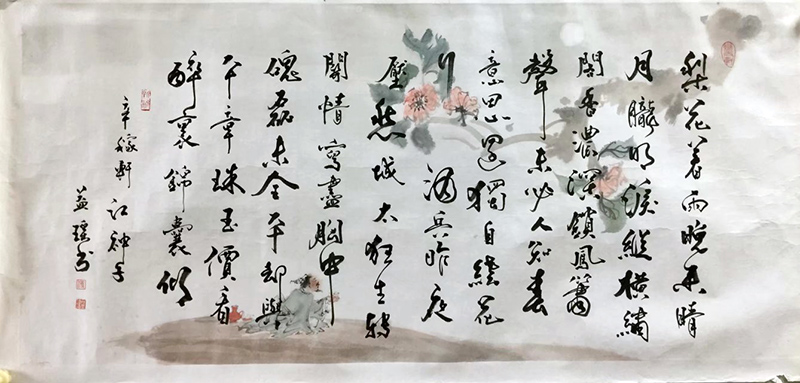 梨花着雨晚來晴
月朧明淚縱橫繡
閣香濃深鎖鳳簫
聲未必人知春
意思還獨自繞花
行 酒兵昨夜
壓愁城太狂生轉
關情寫盡胸中
磈磊未全平却與
平章珠玉價看
醉裏錦囊傾
辛稼軒江神子
益瑶书